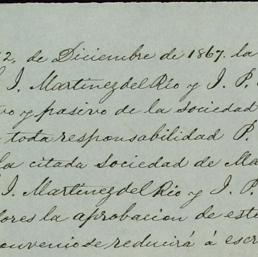 2, de Diciembre de 1867. la
J. Martinez del Rio y J. P.
vo y pasivo de la sociedad
toda responsabilidad P.
la citada sociedad de Ma
J. Martinez del Rio y J. P.
dores la aprobacion de este
convenio se reducirá á escr